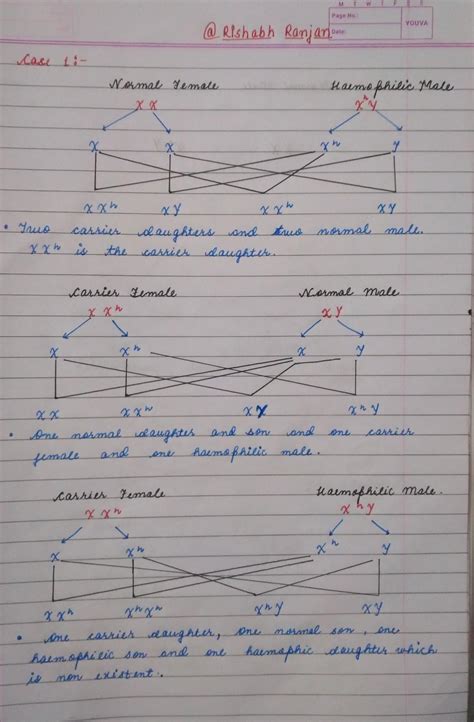 M T W T F S
Page No.:
YOUVA
Date:
@Rishabh Ranjan
Case 1:-
Normal Female Haemophilic Male
X X XʰY
X X Xʰ Y
XXʰ XY XXʰ XY
• Two carrier daughters and two normal male.
XXʰ is the carrier daughter.
Carrier Female Normal Male
X Xʰ XY
X Xʰ X Y
XX XXʰ XY XʰY
• One normal daughter and son and one carrier
female and one haemophilic male.
Carrier Female Haemophilic Male.
X Xʰ XʰY
X Xʰ Xʰ Y
XXʰ XʰXʰ XʰY XY
• One carrier daughter, one normal son, one
haemophilic son and one haemaphic daughter which
is non existent.